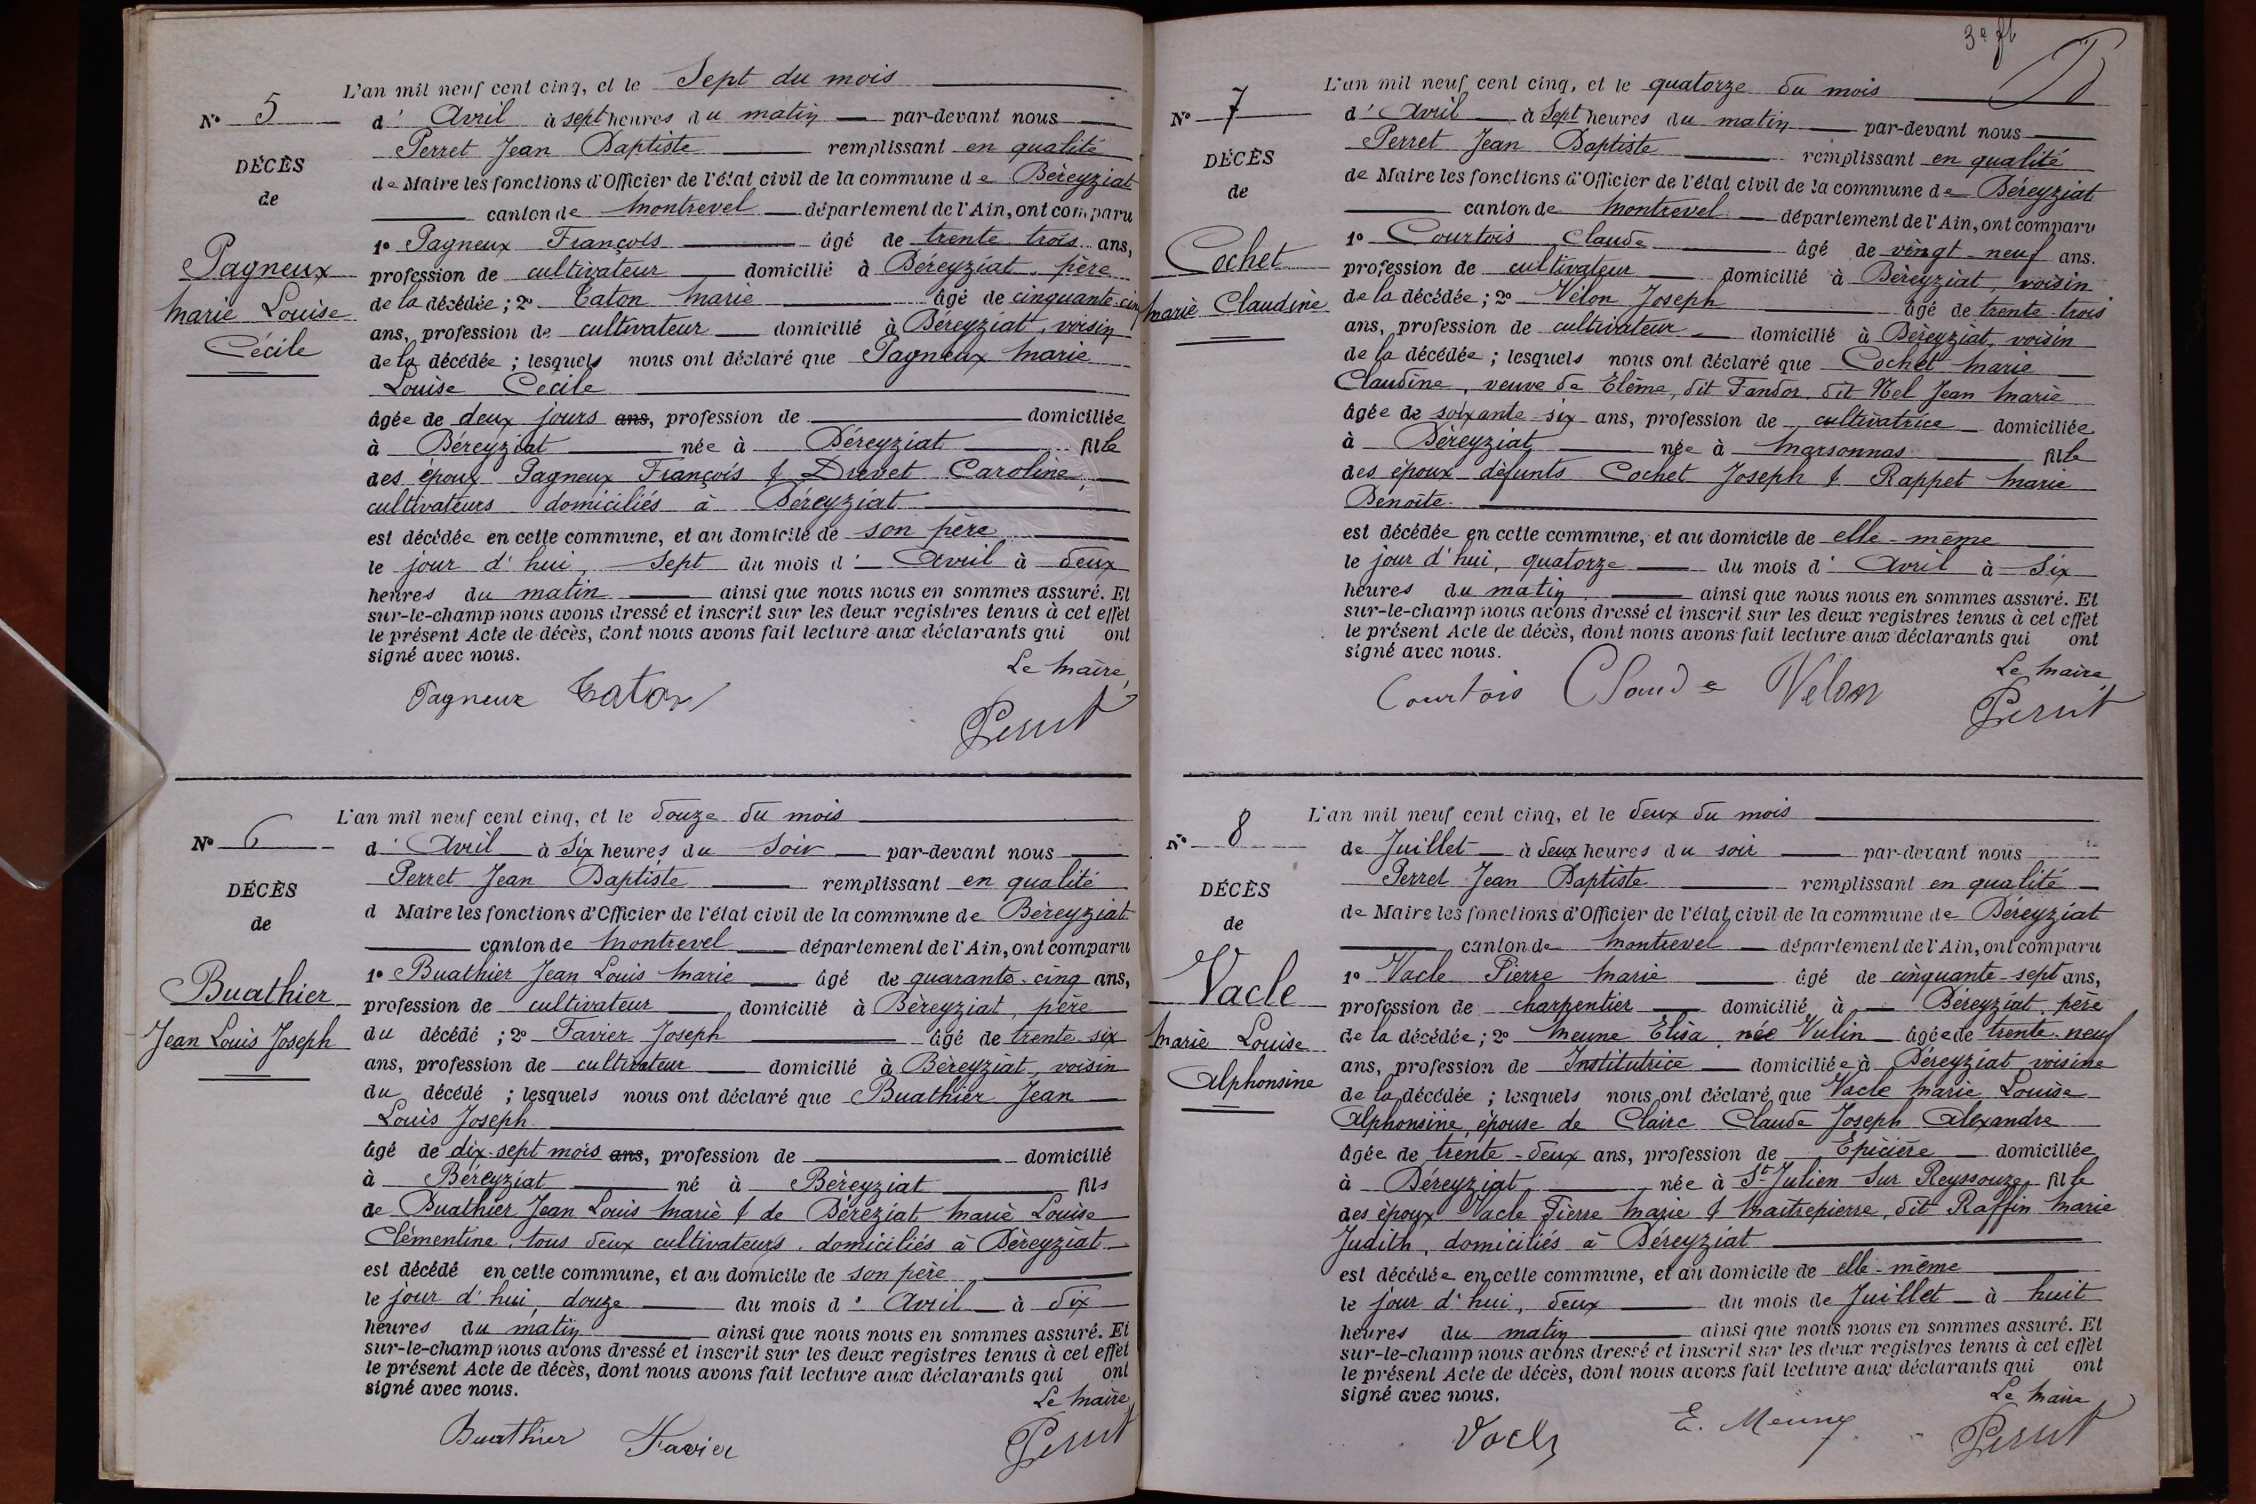 L'an mil neuf cent cinq, et le Sept du mois
N° 5
d' Avril à sept heures du matin par-devant nous
Perret Jean Baptiste remplissant en qualité
DÉCÈS
de Maire les fonctions d'Officier de l'état civil de la commune de Béreyziat
de
canton de Montrevel département de l'Ain, ont comparu
1° Pagneux François âgé de trente trois ans,
Pagneux
profession de cultivateur domicilié à Béreyziat, père
Marie Louise
de la décédée ; 2° Caton Marie âgé de cinquante-cinq
ans, profession de cultivateur domicilié à Béreyziat, voisin
Cécile
de la décédée ; lesquels nous ont déclaré que Pagneux Marie
Louise Cécile
âgée de deux jours ans, profession de domiciliée
à Béreyziat née à Béreyziat fille
des époux Pagneux François & Drevet Caroline,
cultivateurs domiciliés à Béreyziat
est décédée en cette commune, et au domicile de son père
le jour d'hui, Sept du mois d' Avril à deux
heures du matin ainsi que nous nous en sommes assuré. Et
sur-le-champ nous avons dressé et inscrit sur les deux registres tenus à cet effet
le présent Acte de décès, dont nous avons fait lecture aux déclarants qui ont
signé avec nous.
Le Maire,
Pagneux Caton
Perret
L'an mil neuf cent cinq, et le douze du mois
N° 6
d' Avril à Six heures du Soir par-devant nous
Perret Jean Baptiste remplissant en qualité
DÉCÈS
d Maire les fonctions d'Officier de l'état civil de la commune de Béreyziat
de
canton de Montrevel département de l'Ain, ont comparu
1° Buathier Jean Louis Marie âgé de quarante-cinq ans,
Buathier
profession de cultivateur domicilié à Béreyziat, père
Jean Louis Joseph
du décédé ; 2° Favier Joseph âgé de trente six
ans, profession de cultivateur domicilié à Béreyziat, voisin
du décédé ; lesquels nous ont déclaré que Buathier Jean
Louis Joseph
âgé de dix-sept mois ans, profession de domicilié
à Béreyziat né à Béreyziat fils
de Buathier Jean Louis Marie & de Béréziat Marie Louise
Clémentine, tous deux cultivateurs, domiciliés à Béreyziat
est décédé en cette commune, et au domicile de son père
le jour d'hui, douze du mois d' Avril à dix
heures du matin ainsi que nous nous en sommes assuré. Et
sur-le-champ nous avons dressé et inscrit sur les deux registres tenus à cet effet
le présent Acte de décès, dont nous avons fait lecture aux déclarants qui ont
signé avec nous.
Le Maire,
Buathier Favier
Perret
3e ft
L'an mil neuf cent cinq, et le quatorze du mois
N° 7
d' Avril à Sept heures du matin par-devant nous
Perret Jean Baptiste remplissant en qualité
DÉCÈS
de Maire les fonctions d'Officier de l'état civil de la commune de Béreyziat
de
canton de Montrevel département de l'Ain, ont comparu
1° Courtois Claude âgé de vingt-neuf ans.
Cochet
profession de cultivateur domicilié à Béreyziat, voisin
Marie Claudine
de la décédée ; 2° Vélon Joseph âgé de trente-trois
ans, profession de cultivateur domicilié à Béreyziat, voisin
de la décédée ; lesquels nous ont déclaré que Cochet Marie
Claudine, veuve de Elême, dit Fandor, dit Nel Jean Marie
âgée de soixante-six ans, profession de cultivatrice domiciliée
à Béreyziat née à Marsonnas fille
des époux défunts Cochet Joseph & Rappet Marie
Benoîte.
est décédée en cette commune, et au domicile de elle-même
le jour d'hui, quatorze du mois d' Avril à Six
heures du matin ainsi que nous nous en sommes assuré. Et
sur-le-champ nous avons dressé et inscrit sur les deux registres tenus à cet effet
le présent Acte de décès, dont nous avons fait lecture aux déclarants qui ont
signé avec nous.
Le Maire,
Courtois Claude Velon
Perret
L'an mil neuf cent cinq, et le deux du mois
N° 8
de Juillet à deux heures du soir par-devant nous
Perret Jean Baptiste remplissant en qualité
DÉCÈS
de Maire les fonctions d'Officier de l'état civil de la commune de Béreyziat
de
canton de Montrevel département de l'Ain, ont comparu
1° Vacle Pierre Marie âgé de cinquante-sept ans,
Vacle
profession de charpentier domicilié à Béreyziat, père
Marie Louise
de la décédée ; 2° Meune Elisa née Vulin âgée de trente-neuf
ans, profession de Institutrice domiciliée à Béreyziat voisine
Alphonsine
de la décédée ; lesquels nous ont déclaré que Vacle Marie Louise
Alphonsine, épouse de Clairc Claude Joseph Alexandre
âgée de trente-deux ans, profession de Epicière domiciliée
à Béreyziat née à St Julien Sur Reyssouze fille
des époux Vacle Pierre Marie & Maitrepierre, dit Raffin Marie
Judith, domiciliés à Béreyziat
est décédée en cette commune, et au domicile de elle-même
le jour d'hui, deux du mois de Juillet à huit
heures du matin ainsi que nous nous en sommes assuré. Et
sur-le-champ nous avons dressé et inscrit sur les deux registres tenus à cet effet
le présent Acte de décès, dont nous avons fait lecture aux déclarants qui ont
signé avec nous.
Le Maire
Vacle E. Meune
Perret